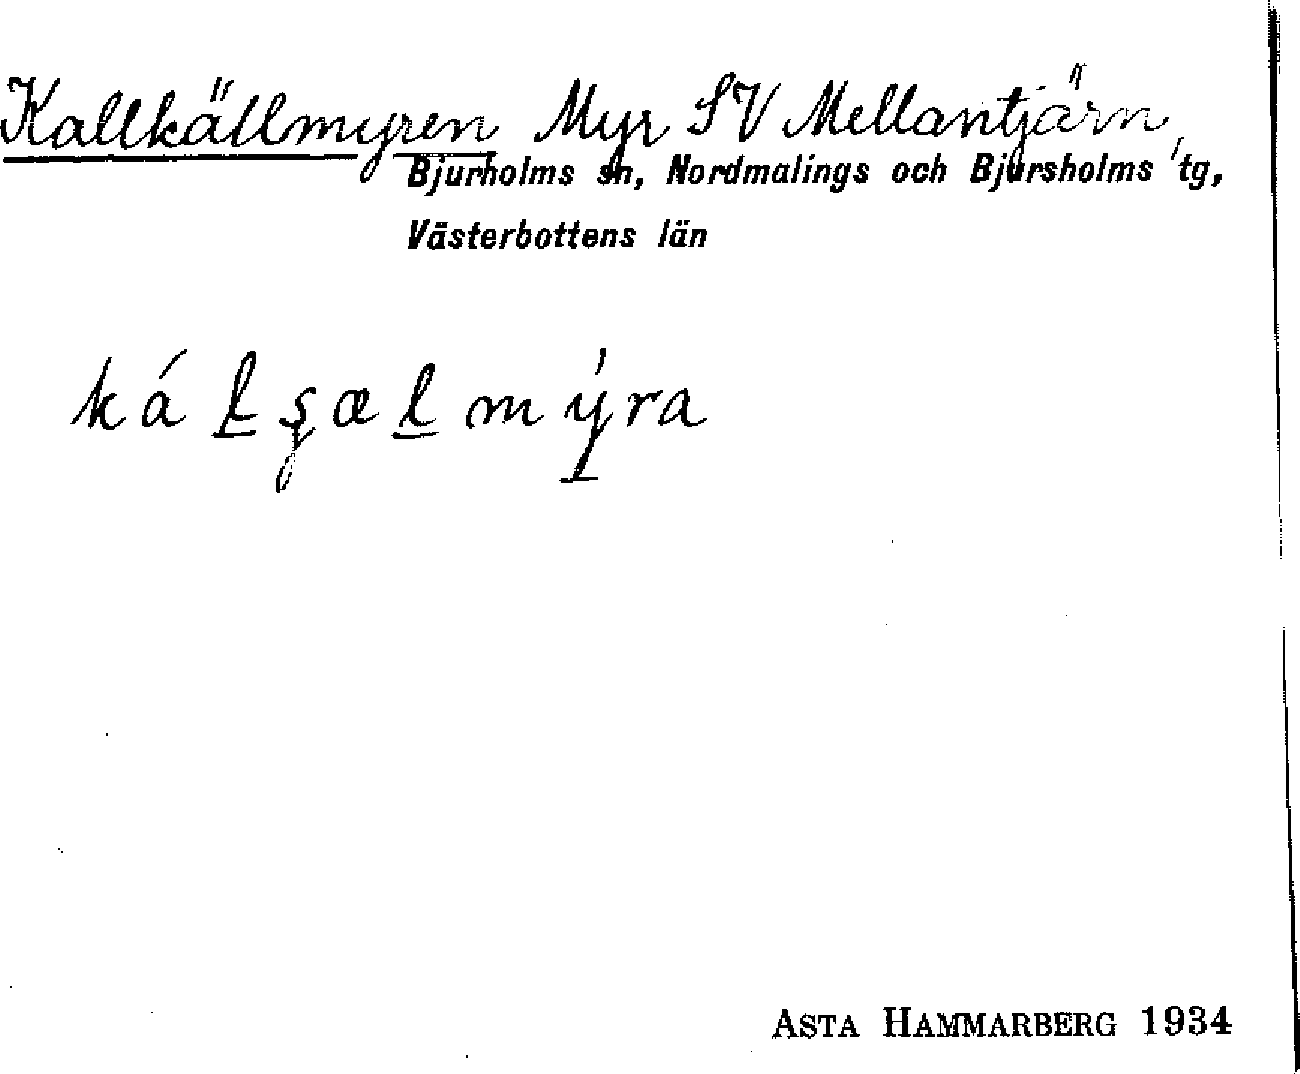 Kallkällmyren Myr SV Mellantjärn,
Bjurholms sn, Nordmalings och Bjursholms tg,
Västerbottens län
ká ḻ ş æ ḻ m ý ra
ASTA HAMMARBERG 1934